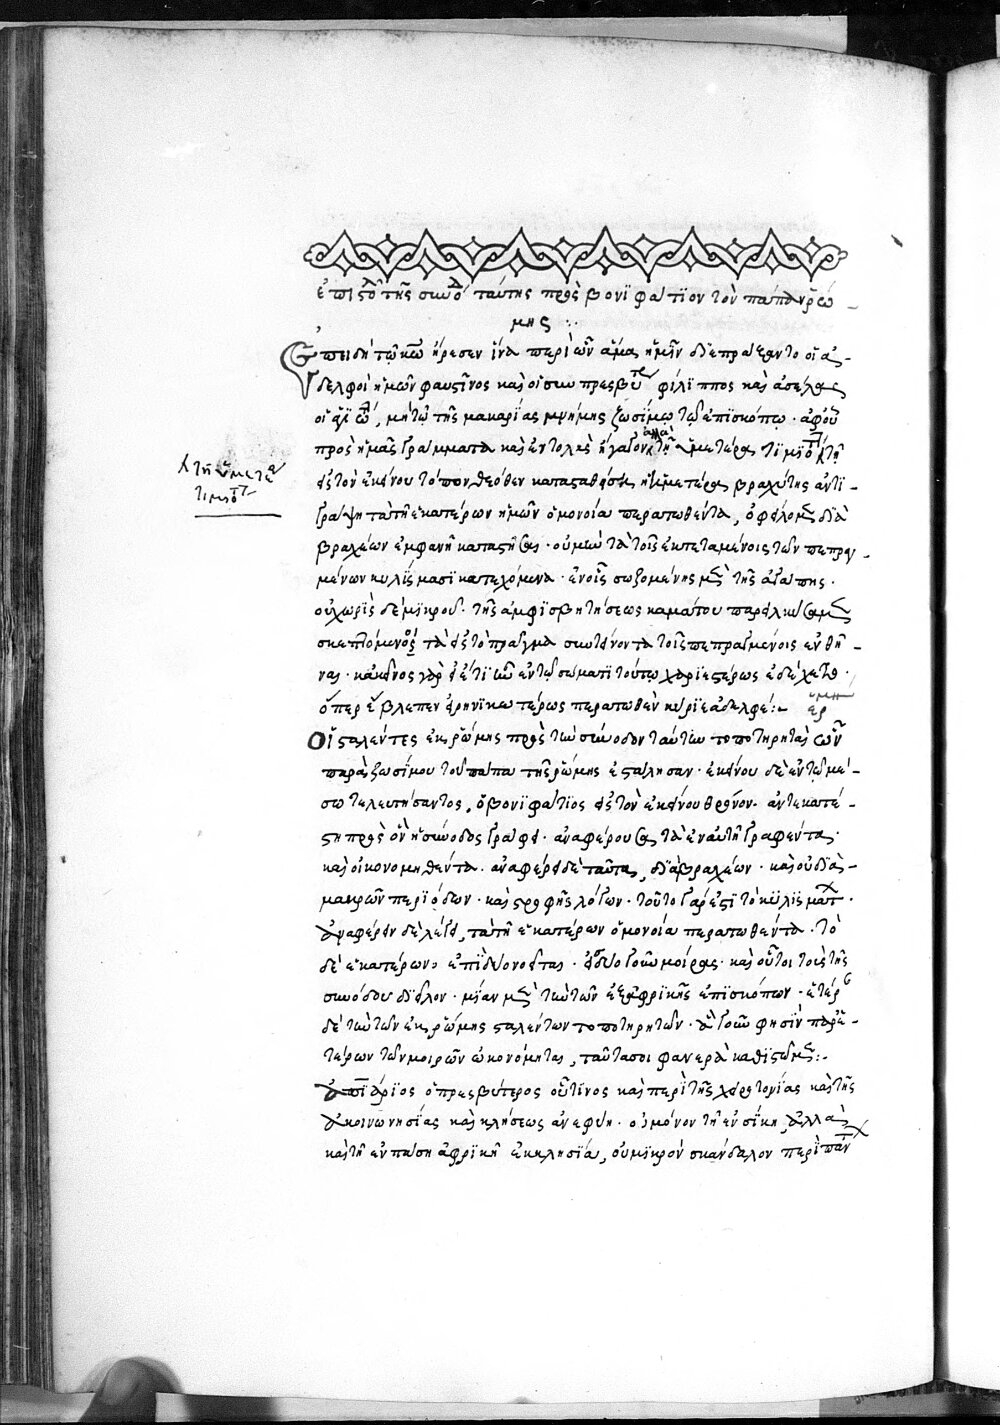 ἐπιστολὴ τῆς συνόδου ταύτης πρὸς βονιφάτιον τὸν πάπαν ῥώ-
μης :·
Ἐπειδὴ τῷ κῶ ἤρεσεν ἵνα περὶ ὧν ἅμα ἡμῖν διεπράξαντο οἱ ἀ-
δελφοὶ ἡμῶν φαυστῖνος καὶ οἱ συμπρεσβύτεροι φίλιππος καὶ ἄσελλος
μὴ τῷ τῆς μακαρίας μνήμης ζωσίμῳ τῷ ἐπισκόπῳ · ἀφ' οὗ
πρὸς ἡμᾶς γράμματα καὶ ἐντολὰς ἤγαγον
εἰς τὸν ἐκείνου τόπον θεόθεν κατασταθείσῃ ἡ ἡμετέρα βραχύτης ἀντι-
γράψῃ τὰ τῇ ἑκατέρων ἡμῶν ὁμονοίᾳ περατωθέντα, ὀφείλομεν διὰ
βραχέων ἐμφανῆ καταστῆσαι · οὐ μὴν τὰ τοῖς ἐκτεταμένοις τῶν πεπραγ-
μένων κυλίσμασι κατεχόμενα · ἐν οἷς σωζομένης μὲν τῆς ἀγάπης ·
οὐ χωρὶς δὲ μικροῦ τῆς ἀμφισβητήσεως καμάτου παρειλκύσαμεν
σκεπτόμενοι τὰ εἰς τὸ πρᾶγμα συντείνοντα τοῖς πεπραγμένοις ἐνθῆ-
ναι · κἀκεῖνος γὰρ εἰ ἔτι ὢν ἐν τῷ σώματι τούτῳ χαριεστέρως ἐδέχετο ·
ὅπερ ἔβλεπεν εἰρηνικωτέρως περατωθὲν κύριε ἀδελφέ :-
Οἱ σταλέντες ἐκ ῥώμης πρὸς τὴν σύνοδον ταύτην τοποτηρηταὶ
παρὰ ζωσίμου τοῦ πάπα τῆς ῥώμης ἐστάλησαν · ἐκείνου δὲ ἐν τῷ μέ-
σῳ τελευτήσαντος, ὁ βονιφάτιος εἰς τὸν ἐκείνου θρόνον ἀντεκατέ-
στη πρὸς ὃν ἡ σύνοδος γράφει · ἀναφέρουσα τὰ ἐν αὐτῇ γραφέντα ·
καὶ οἰκονομηθέντα · ἀναφέρει δὲ ταῦτα, διὰ βραχέων · καὶ οὐ διὰ
μακρῶν περιόδων · καὶ στροφῆς λόγων · τοῦτο γάρ ἐστι τὸ κυλίσματι ·
ἀναφέρειν δὲ λέγει, τὰ τῇ ἑκατέρων ὁμονοίᾳ περατωθέντα · τὸ
δὲ ἑκατέρων, ἐπὶ δύο νοεῖται · εἰς δύο γοῦν μοίρας · καὶ οὗτοι τοὺς τῆς
συνόδου διεῖλον · μίαν μὲν τὴν τῶν ἐξ ἀφρικῆς ἐπισκόπων · ἑτέραν
δὲ τὴν τῶν ἐκ ῥώμης σταλέντων τοποτηρητῶν · ἃ γοῦν φησὶν παρ' ἑκα-
τέρων τῶν μοιρῶν ᾠκονόμηται, ταῦτά σοι φανερὰ καθιστῶμεν :-
ἀπιάριος ὁ πρεσβύτερος οὗτινος καὶ περὶ τῆς χειροτονίας καὶ τῆς
ἀκοινωνησίας καὶ κλήσεως ἀνεφύη · οὐ μόνον τῇ ἐν σίκῃ, ἀλλὰ
καὶ τῇ ἐν πάσῃ ἀφρικῇ ἐκκλησίᾳ, οὐ μικρὸν σκάνδαλον περὶ πάν
τῇ ὑμετέρᾳ
τιμιότητι